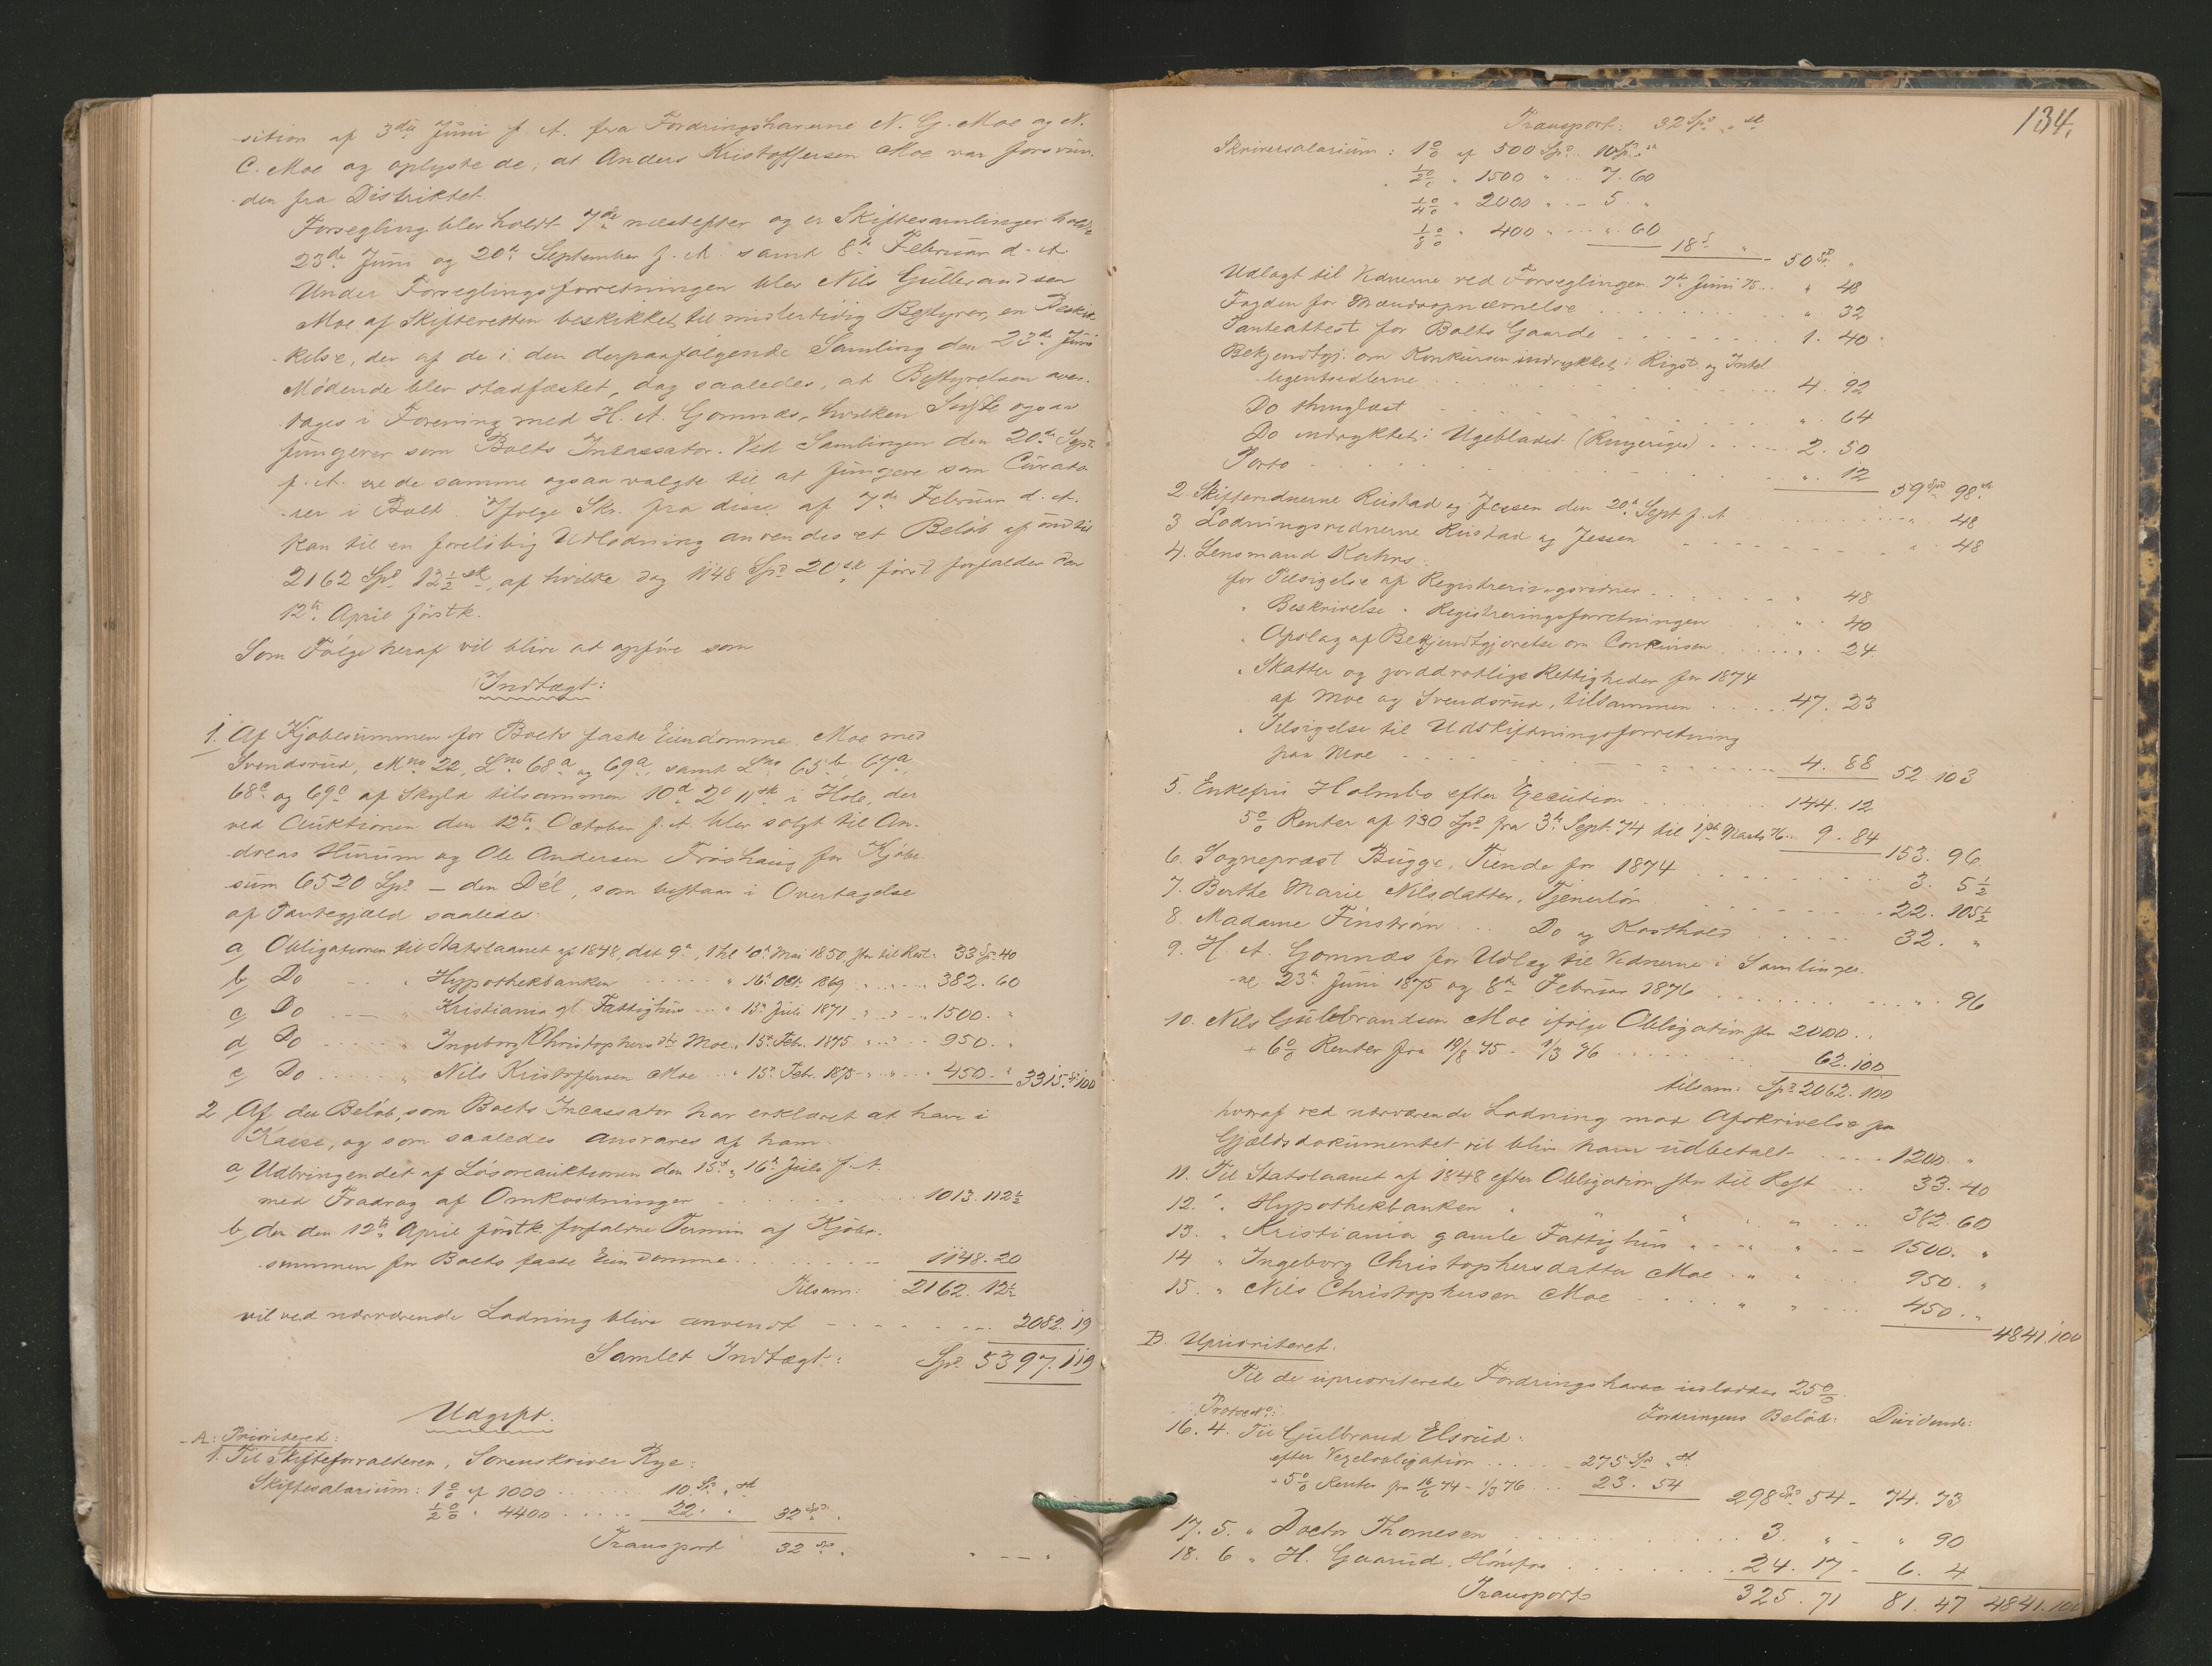 sition af 3die Juni f. A. fra Fordringshaverne N. G. Moe og N.
C. Moe og oplyste de, at Anders Kristoffersen Moe var forsvun-
den fra Distriktet.
Forsegling blev holdt 7de næstefter og er Skiftesamlinger holdt
23de Juni og 20de September f. A. samt 8de Februar d. A.
Under Forseglingsforretningen blev Nils Gulbrandsen
Moe af Skifteretten beskikket til midlertidig Bestyrer, en Beskik-
kelse, der af de i den derpaafølgende Samling den 23de Juni
Mødende blev stadfæstet, dog saaledes, at Bestyrelsen over-
tages i Forening med H. A. Gomnæs, hvilken Sidste ogsaa
fungerer som Boets Incassator. Ved Samlingen den 20de Sept.
f. A. ere de samme ogsaa valgte til at fungere som Curato-
rer i Boet. Ifølge Skr. fra disse af 7de Februar d. A.
kan til en foreløbig Udlodning anvendes et Beløb af indtil
2162 Spd 12½ sk, af hvilke dog 1148 Spd 20 sk først forfalder den
12te April førstk.
Som Følge heraf vil blive at opføre som
Indtægt:
1. Af Kjøbesummen for Boets faste Eiendomme Moe med
Svendsrud, Mno 22, Lno 68a og 69a, samt Lno 65b, 67a,
68c og 69c af Skyld tilsammen 10d 2o 11sk i Hole, der
ved Auktionen den 12te October f. A. blev solgt til An-
dreas Hurum og Ole Andersen Frøshaug for Kjøbe-
sum 6520 Spd – den Del, som bestaar i Overtagelse
af Pantegjæld saaledes:
a, Obligationen til Statslaanet af 1848, dat 9de, thl 10de Mai 1850, stor til Rest: 33 Spd 40
b, Do " Hypothekbanken " 16de Oct. 1869 382. 60
c, Do " Kristiania gl. Fattighus " 13de Juli 1871 1500. "
d, Do " Ingeborg Christophersdtr Moe " 15de Febr. 1875 950. "
e, Do " Nils Kristoffersen Moe " 15de Febr. 1875 450. " 3315 Spd 100
2 Af det Beløb, som Boets Incassator har erklæret at have i
Kasse, og som saaledes ansvares af ham:
a Udbringendet af Løsøreauktionen den 15de & 16de Juli f. A.
med Fradrag af Omkostninger 1013. 112½
b, den den 12te April førstk. forfaldne Termin af Kjøbe-
summen for Boets faste Eiendomme 1148. 20
Tilsam: 2162. 12½
vil ved nærværende Lodning blive anvendt 2082. 19
Samlet Indtægt: Spd 5397. 119
Udgift.
A: Prioriteret:
1. Til Skifteforvalteren, Sorenskriver Rye:
Skiftesalarium: 1% af 1000 10 Spd " sk
½% " 4400 22. " 32 Spd "
Transport 32 Spd "
134.
Transport: 32 Spd " sk
Skriversalarium: 1% af 500 Spd 10 Spd "
½% " 1500 " 7. 60
¼% " 2000 " 5. "
⅛% " 400 " " 60
18 " 50 Spd "
Udlagt til Vidnerne ved Forseglingen 7de Juni 75 " 48
Fogden for Mændsopnævnelse " 32
Panteattest for Boets Gaarde 1. 40
Bekjendtgj. om Konkursen indrykket i Rigst. og Intel-
ligentsedlerne 4. 92
Do thinglæst " 64
Do indrykket i Ugebladet (Ringeriges) 2. 50
Porto " 12 59 Spd 98 sk
2. Skiftevidnerne Rustad og Jessen den 20de Sept. f. A. " 48
3 Lodningsvidnerne Rustad og Jessen " 48
4. Lensmand Kahrs:
for Tilsigelse af Registreringsvidner " 48
" Beskrivelse " Registreringsforretningen " 40
" Opslag af Bekjendtgjørelse om Conkursen " 24
" Skatter og jorddrotlige Rettigheder for 1874
af Moe og Svendsrud, tilsammen 47. 23
" Tilsigelse til Udskiftningsforretning
paa Moe 4. 88 52. 103
5. Enkefru Holmbo efter Execution 144. 12
5% Renter af 130 Spd fra 3de Sept. 74 til 1ste Marts 76 9. 84 153. 96
6. Sognepræst Bugge, Tiende for 1874 3. 5½
7. Berthe Marie Nilsdatter, Tjenerløn 22. 105½
8. Madame Finstrøm Do og Kosthold 32. "
9. H. A. Gomnæs for Udlæg til Vidnerne i Samlinger-
ne 23de Juni 1875 og 8de Februar 1876 " 96
10. Nils Gulbrandsen Moe ifølge Obligation stor 2000
+ 6% Renter fra 19/8 75 - 1/3 76 62. 100
tilsam: Spd 2062. 100
hvoraf ved nærværende Lodning mod Afskrivelse paa
Gjældsdokumentet vil blive ham udbetalt 1200. "
11. Til Statslaanet af 1848 efter Obligation stor til Rest 33. 40
12. " Hypothekbanken " " " " " 382. 60
13. " Kristiania gamle Fattighus " " " 1500. "
14 " Ingeborg Christophersdatter Moe " " 950. "
15. " Nils Christophersen Moe " " 450. "
4841. 100
B. Uprioriteret.
Til de uprioriterede Fordringshavere udloddes 25%.
Protoc No: Fordringens Beløb: Dividende:
16. 4. Til Gulbrand Elsrud:
efter Vexelobligation 275 Spd " sk
+ 5% Renter fra 16/6 74 - 1/3 76 23. 54 298 Spd 54 - 74. 73
17. 5. " Doctor Thomesen 3. " - " 90
18. 6 " H. Gaarud, Hønefos 24. 17 - 6. 4
Transport 325. 71 81. 47 4841. 100